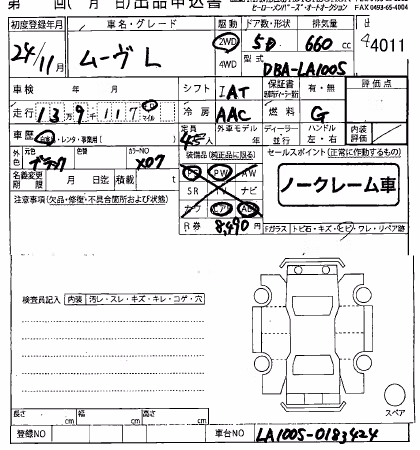 第 回(月 日)出品申込書
FAX 0493-65-4004
初度登録年月 車名・グレード 駆動 ドア数・形状 排気量
24/11月 ムーヴ L 2WD 4WD 5D 660 cc 4011
型式 DBA-LA100S
車検 年 月 シフト IAT 保証書 有・無 評価点
走行 13万9千117 km マイル 冷房 AAC 燃料 G
車歴 自家用・レンタ・事業用( ) 定員 4名 外車モデル年 ディーラー 並行 ハンドル 左・右 内装評価
外色 元色 ブラック 色替 カラーNO X07
装備品(純正品に限る) セールスポイント(正常に作動するもの)
PS PW AW
SR ナビ
ナワ エアB ABS
名義変更期限 月 日迄 積載 t
ノークレーム車
注意事項(欠品・修復・不具合箇所および状態) R券 8,490円 Fガラス トビ石・キズ・ヒビ・ワレ・リペア跡
検査員記入 内装 汚レ・スレ・キズ・キレ・コゲ・穴
スペア
長さ cm 幅 cm 高さ cm
登録NO 車台NO LA100S-0183424